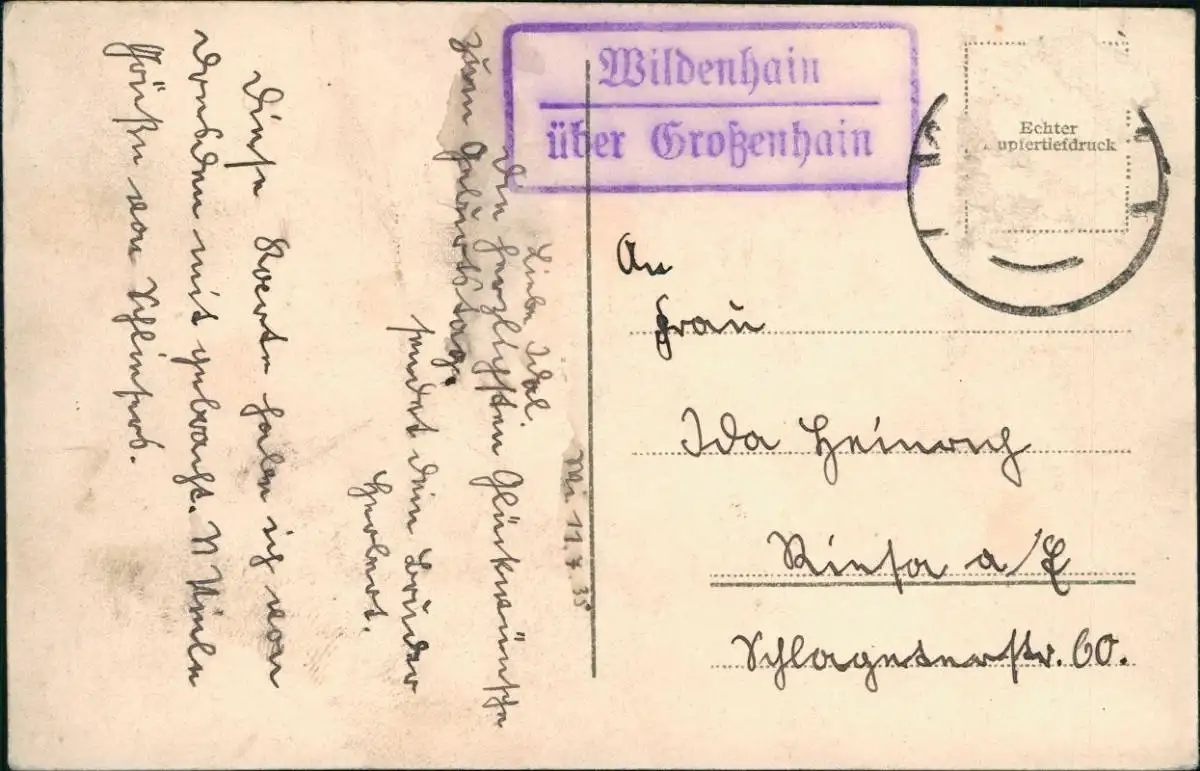 Wildenhain
über Großenhain
Echter
upfertiefdruck
Wi 11.7.35
Liebe Ida!
Die herzlichsten Glückwünsche
zum Geburtstag.
sendet dein Bruder
Herbert.
Diese Karte habe ich von
Dresden mit gebracht. N Viele
Grüße von
An
Frau
Ida Heinrich
Riesa a/E
Schlageterstr. 60.